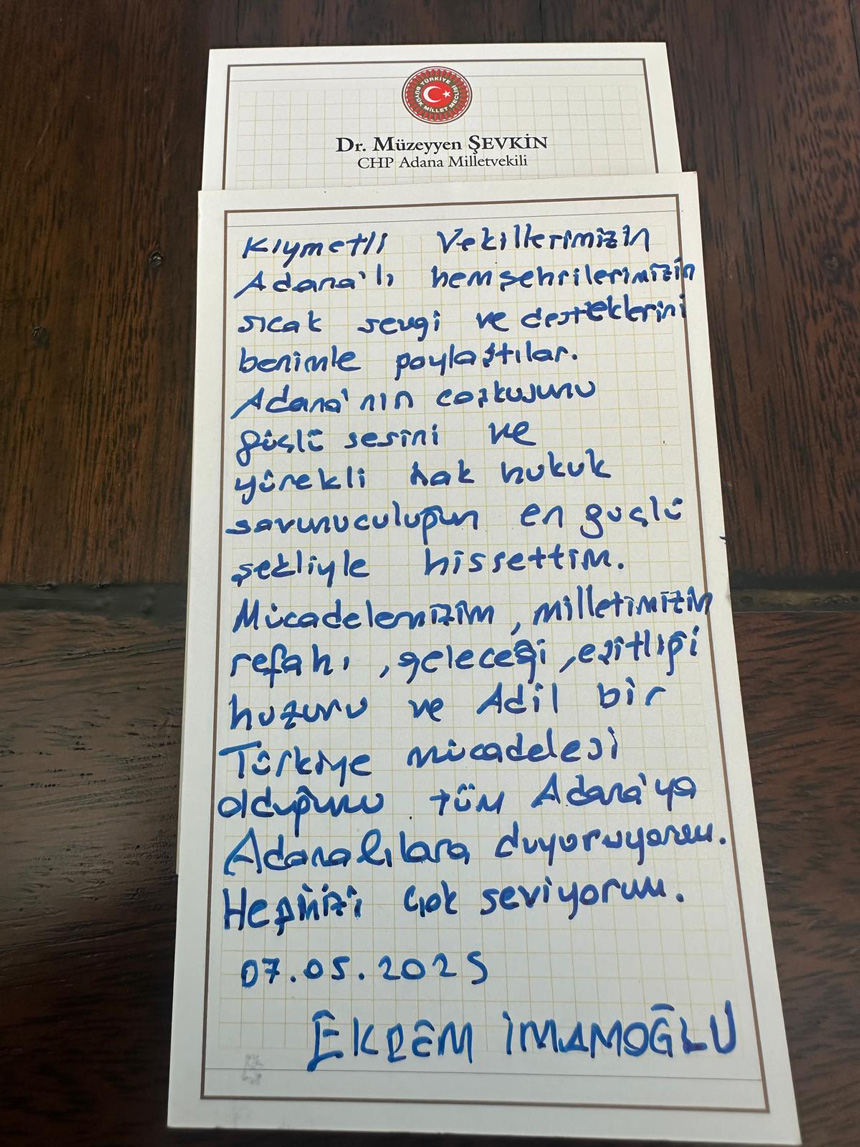 TÜRKİYE BÜYÜK MİLLET MECLİSİ
Dr. Müzeyyen ŞEVKİN
CHP Adana Milletvekili
Kıymetli Vekillerimizin
Adana'lı hemşehrilerimizin
sıcak sevgi ve desteklerini
benimle paylaştılar.
Adana'nın coşkusunu
güçlü sesini ve
yürekli hak hukuk
savunuculuğun en güçlü
şekliyle hissettim.
Mücadelemizim, milletimizin
refahı, geleceği, eşitliği
huzuru ve Adil bir
Türkiye mücadelesi
olduğunu tüm Adana'ya
Adanalılara duyuruyorum.
Hepinizi çok seviyorum.
07.05.2025
EKREM İMAMOĞLU